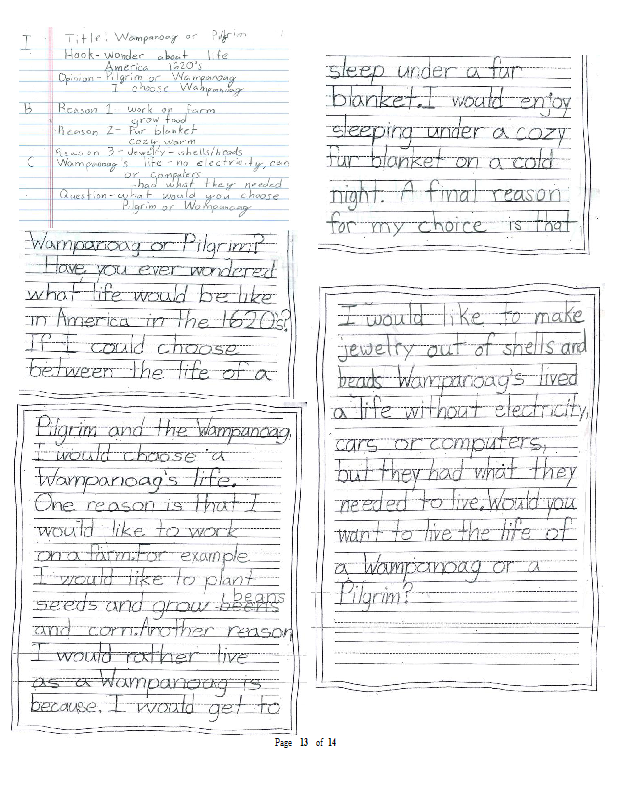 I Title: Wampanoag or Pilgrim
Hook- wonder about life
America 1620's
Opinion- Pilgrim or Wampanoag
I choose Wampanoag
B Reason 1- work on farm
grow food
Reason 2- Fur blanket
cozy warm
Reason 3- Jewelry- shells/beads
C Wampanoag's life- no electricity, cars
or computers
had what they needed
Question- what would you choose
Pilgrim or Wampanoag
Wampanoag or Pilgrim?
Have you ever wondered
what life would be like
in America in the 1620's?
If I could choose
between the life of a
Pilgrim and the Wampanoag,
I would choose a
Wampanoag's life.
One reason is that I
would like to work
on a farm.For example
I would like to plant
beans
seeds and grow beens
and corn.Another reason
I would rather live
as a Wampanoag is
because. I would get to
sleep under a fur
blanket.I would enjoy
sleeping under a cozy
fur blanket on a cold
night. A final reason
for my choice is that
I would like to make
jewelry out of shells and
beads Wampanoag's lived
a life without electricity,
cars or computers,
but they had what they
needed to live.Would you
want to live the life of
a Wampanoag or a
Pilgrim?
Page 13 of 14